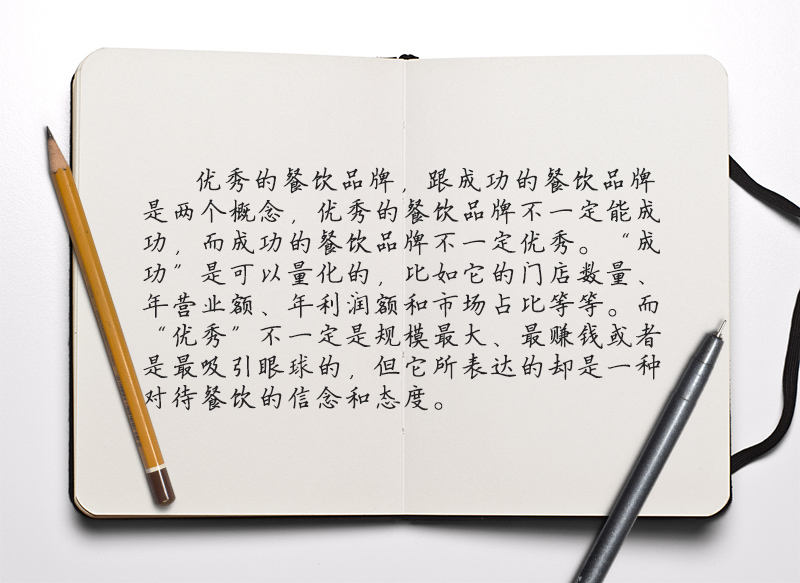 优秀的餐饮品牌，跟成功的餐饮品牌
是两个概念，优秀的餐饮品牌不一定能成
功，而成功的餐饮品牌不一定优秀。“成
功”是可以量化的，比如它的门店数量、
年营业额、年利润额和市场占比等等。而
“优秀”不一定是规模最大、最赚钱或者
是最吸引眼球的，但它所表达的却是一种
对待餐饮的信念和态度。